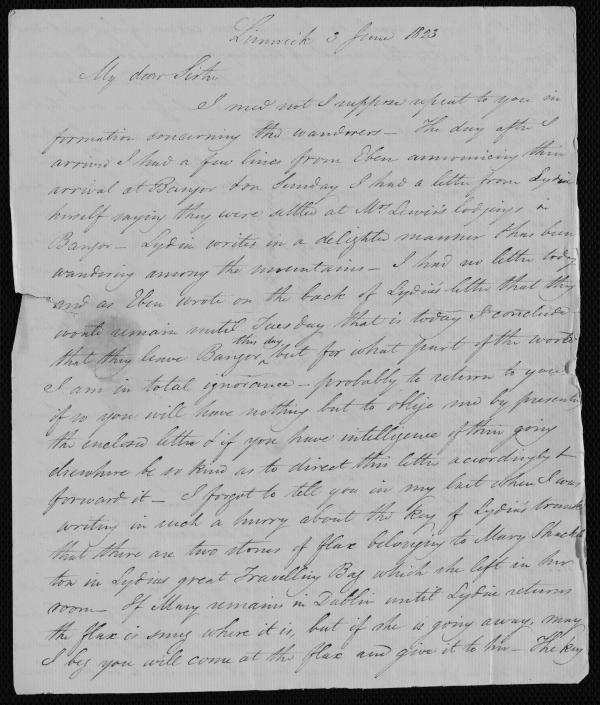 Limerick 3 June 1823
My dear Sister
I need not I suppose repeat to you in
formation concerning the wanderers – The day after I
arrived I had a few lines from Eben announcing their
arrival at Bangor & on Sunday I had a letter from Lydia
herself saying they were settled at Mrs Lewis's lodgings in
Bangor – Lydia writes in a delighted manner & has been
wandering among the mountains – I had no letter today
and as Eben wrote on the back of Lydia's letter that they
would remain until Tuesday that is today I conclude
that they leave Bangor this day but for what part of the world
I am in total ignorance – probably to return to you
if so you will have nothing but to oblige me by presenting
the enclosed letter & if you have intelligence of their going
elsewhere be so kind as to direct this letter accordingly &
forward it – I forgot to tell you in my last when I was
writing in such a hurry about the key of Lydia's trunk
that there are two stones of flax belonging to Mary Shackle
ton in Lydia's great Travelling Bag which she left in her
room – If Mary remains in Dublin until Lydia returns
the flax is snug where it is, but if she is going away, may
I beg you will come at the flax and give it to her – The key